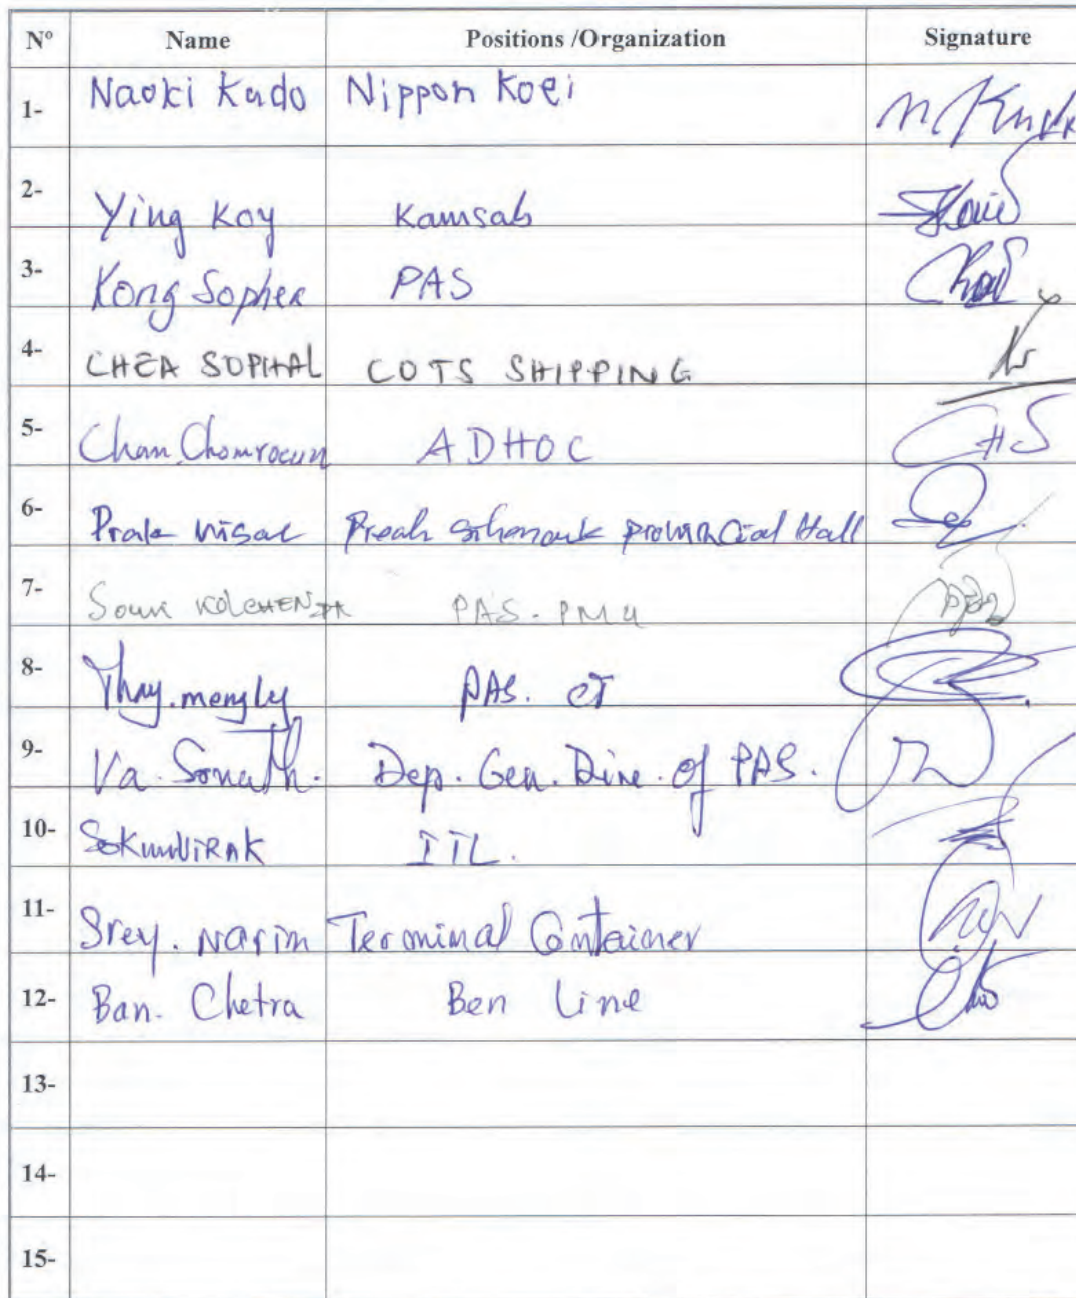 Nº Name Positions /Organization Signature
1- Naoki Kudo Nippon Koei
2- Ying Koy Kamsab
3- Kong Sopher PAS
4- CHEA SOPHAL COTS SHIPPING
5- Cham Chomroeun ADHOC
6- Prak Visal Preah Sihanouk provincial Hall
7- PAS-PMU
8- Thay.mengly PAS. CT
9- Va. Sonath. Dep. Gen. Dire. of PAS.
10- ITL.
11- Srey. Narin Terminal Container
12- Ban. Chetra Ben Line
13-
14-
15-